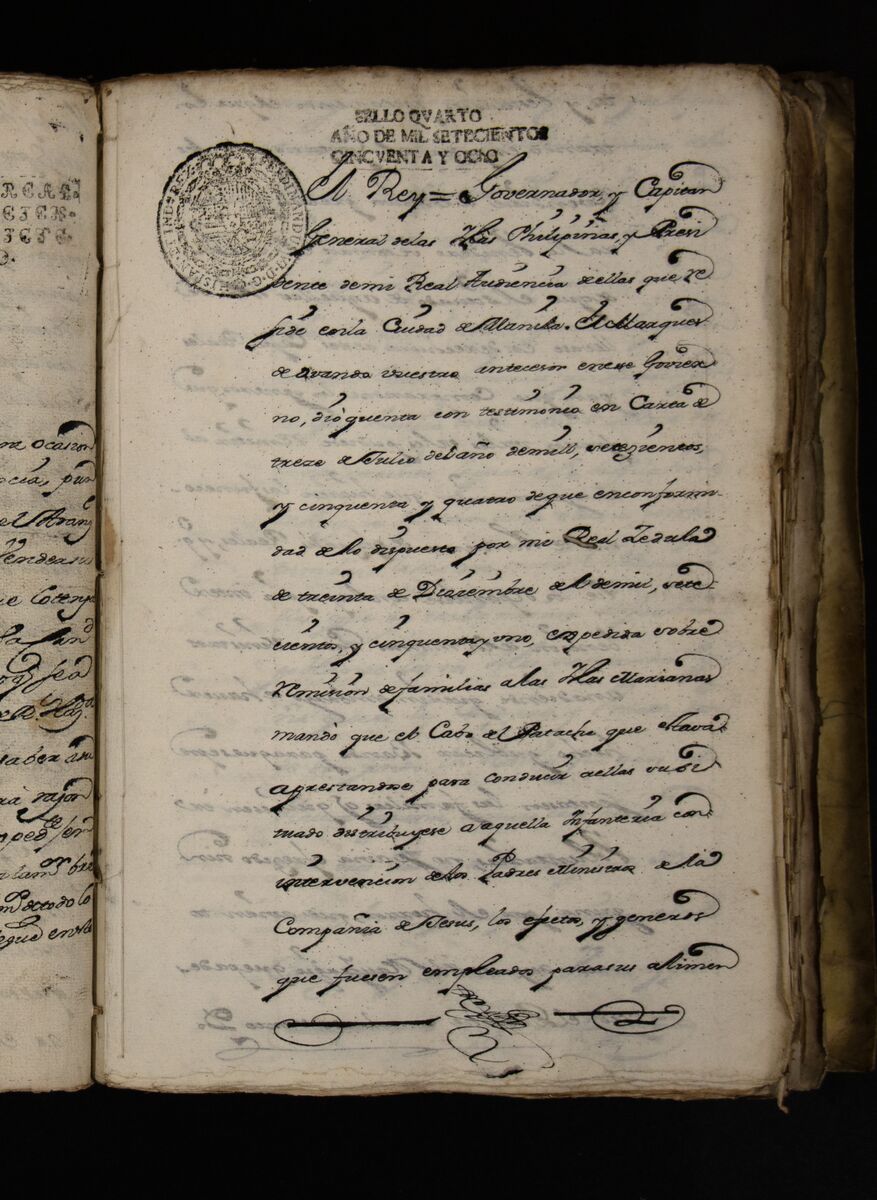 SELLO QVARTO
AÑO DE MIL SETECIENTOS
CINCVENTA Y OCHO
El Rey = Governador, y Capitan
General delas Yslas Philipinas, y Presi
dente demi Real Audiencia de ellas que re
side en la Ciudad de Manila. El Marques
de ovando vuestro antecesor en ese Govier
no, dió quenta con testimonio en Carta de
treze de Julio del año demill, setezientos,
y cinquenta y quatro de que en conformi
dad de lo dispuesto por mi Real Zedula
de treinta de Diziembre de el de mil, sete
cientos, y cinquenta y uno, expedida sobre
remision de familias a las Yslas Marianas
mandó que el Cabo del Patache que estava
aprestandose para conducir a ellas su si
tuado distribuyese a aquella Infanteria con
intervencion de los Padres Ministros de la
Compañia de Jesus, los efectos, y generos
que fuesen empleados para sus alimen
na ocasion
ncia, pun
saber asu